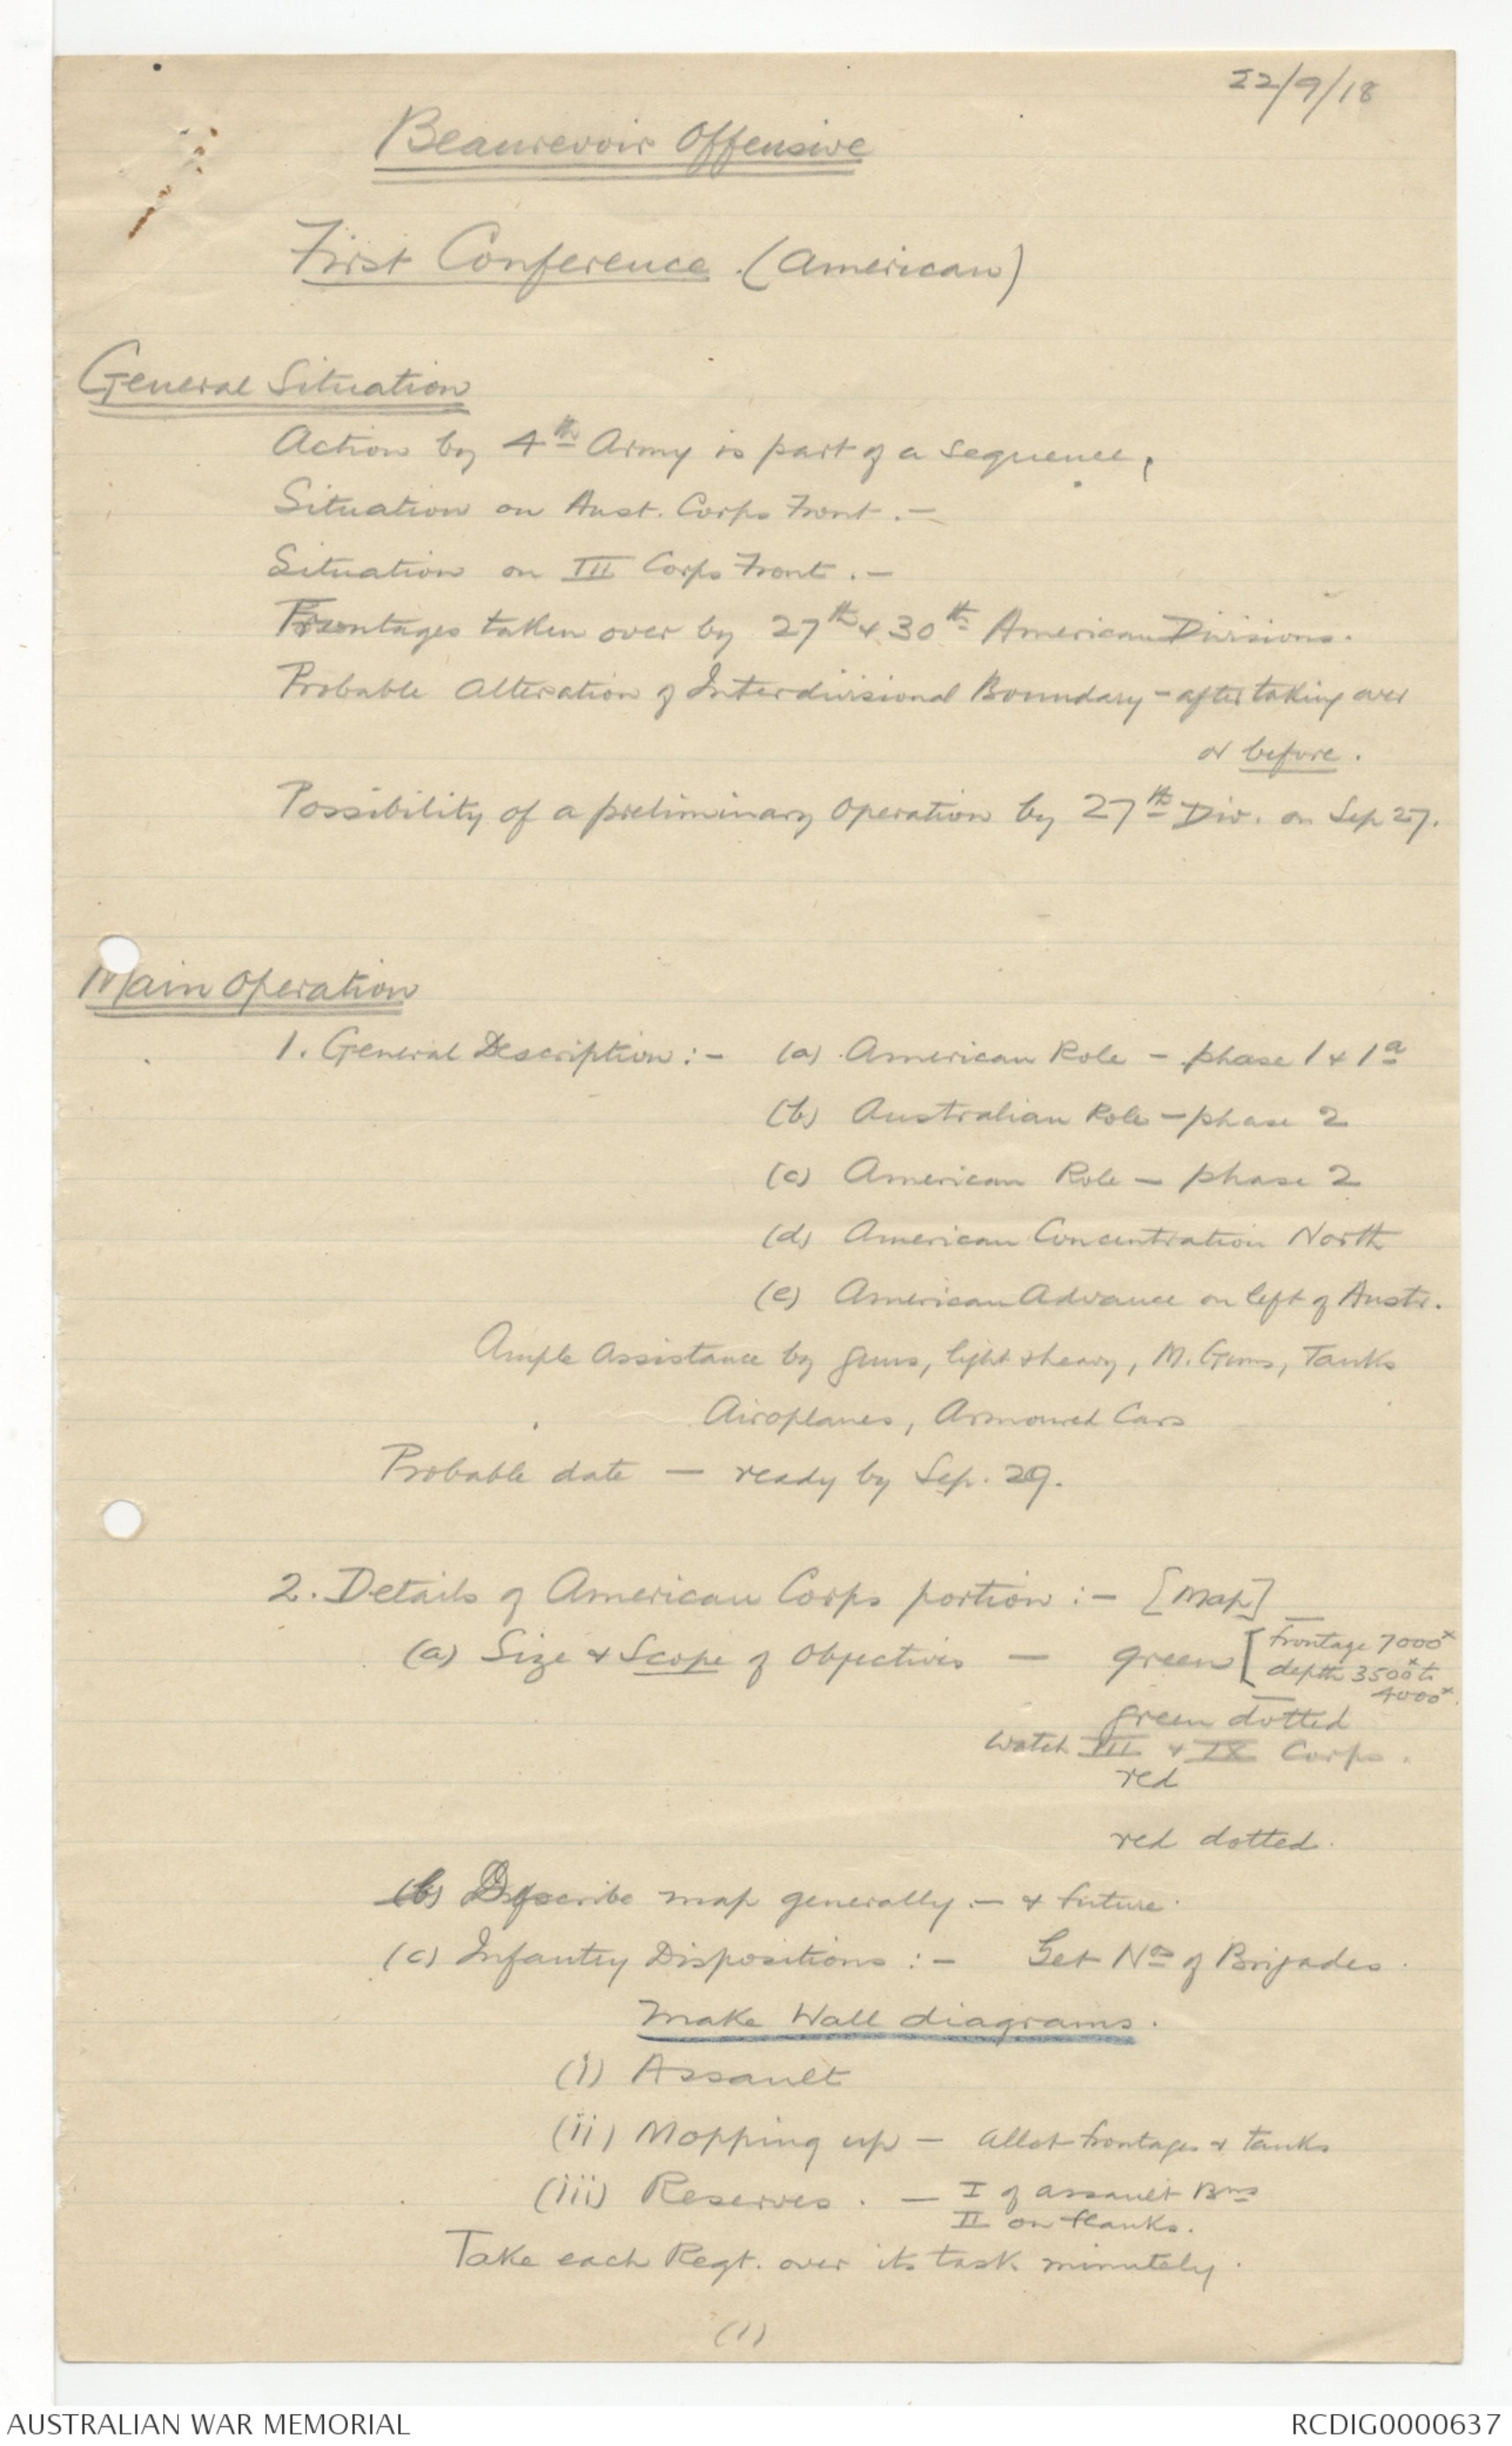 22/9/18
Beaurevoir Offensive
First Conference. (American)
General Situation
Action by 4th Army is part of a sequence,
Situation on Aust. Corps Front. —
Situation on III Corps Front. —
Frontages taken over by 27th & 30th American Divisions.
Probable Alteration of Interdivisional Boundary — after taking over
or before.
Possibility of a preliminary Operation by 27th Div. on Sep 27.
Main Operation
1. General Description :- (a) American Role — phase 1 & 1a
(b) Australian Role — phase 2
(c) American Role — phase 2
(d) American Concentration North
(e) American Advance on left of Austr.
Ample Assistance by guns, light & heavy, M. Guns, Tanks
Airoplanes, Armoured Cars
Probable date — ready by Sep. 29.
2. Details of American Corps portion :- [Map]
(a) Size & Scope of Objectives — green [ frontage 7000x
depth 3500x to
4000x.
green dotted
Watch III & IX Corps.
red
red dotted.
(b) Describe map generally. — & future.
(c) Infantry Dispositions :- Get Nos of Brigades.
Make Wall diagrams.
(i) Assault
(ii) Mopping up — allot frontages & tanks
(iii) Reserves. — I of assault Bns
II on flanks.
Take each Regt. over its task minutely.
(1)
AUSTRALIAN WAR MEMORIAL
RCDIG0000637